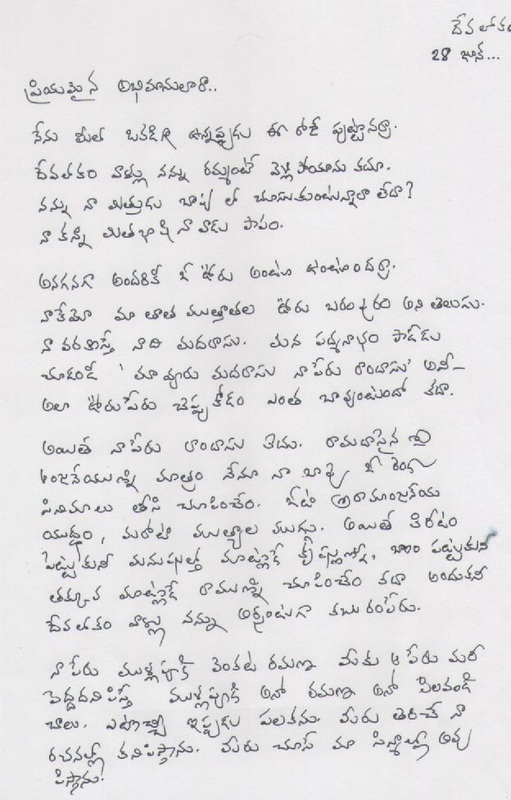 దేవలోకం
28 జూన్...
ప్రియమైన అభిమానులారా..
నేను మీలో ఒకడిగా ఉన్నప్పుడు ఈ రోజే పుట్టానర్రా.
దేవలోకం వాళ్లు నన్ను రమ్మంటే వెళ్లిపోయాను కదూ.
నన్ను నా మిత్రుడు బాపు లో చూసుకుంటున్నారా లేదా?
నా కన్న మితభాషి నా వాడు పాపం.
అనగనగా అందరికీ ఓ ఊరు అంటూ ఉంటుందర్రా.
నాకేమో మా తాత ముత్తాతల ఊరు బరంపురం అని తెలుసు.
నా వరకొస్తే నాది మదరాసు. మన పద్మనాభం పాడేడు
చూడండీ 'మా వూరు మదరాసు నా పేరు రాందాసు' అనీ–
అలా ఊరు పేరు చెప్పుకోడం ఎంత బావుంటుందో కదా.
అయితే నా పేరు రాందాసు కాదు. రామదాసైన శ్రీ
ఆంజనేయుణ్ని మాత్రం నేనూ నా బాపు ఓ రెండు
సినిమాలు తీసి చూపించేం. ఒకటి శ్రీరామాంజనేయ
యుద్ధం, మరోటి ముత్యాల ముగ్గు. అయితే కిరీటం
పెట్టుకునీ మనుషుల్తో మాట్లాడే కృష్ణుణ్నీ, బాణం పట్టుకునీ
తక్కువ మాట్లాడే రాముణ్ని చూపించేం కదా అందుకనీ
దేవలోకం వాళ్లు నన్ను అర్జంటుగా కబురంపేరు.
నా పేరు ముళ్లపూడి వెంకట రమణ మీకు ఆ పేరు మరీ
పెద్దదనిపిస్తే ముళ్లపూడి అనో రమణ అనో పిలవండి
చాలు. ఎటొచ్చీ ఇప్పుడు పలకను. మీరు తెరిచే నా
రచనల్లో కనిపిస్తాను. మీరు చూసే మా సిన్మాల్లో అవు
పిస్తాను.